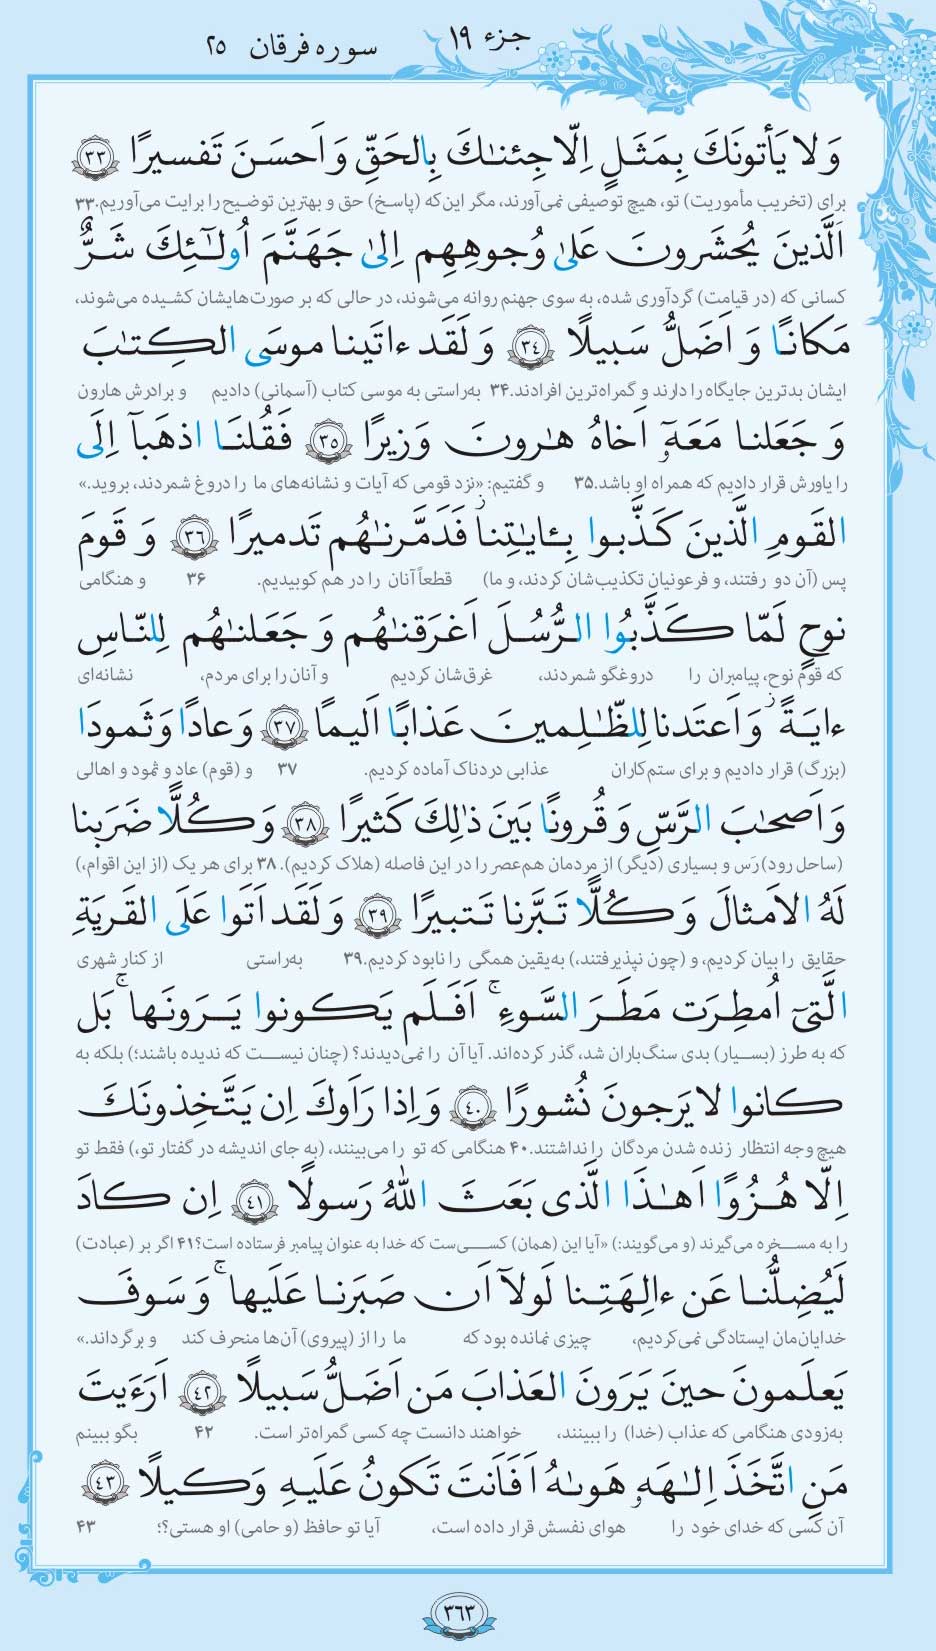 جزء ۱۹
سوره فرقان ۲۵
وَ لا يَأتونَكَ بِمَثَلٍ اِلّا جِئنٰكَ بِالحَقِّ وَ اَحسَنَ تَفسيرًا ﴿۳۳﴾
برای (تخریب مأموریت) تو، هیچ توصیفی نمی‌آورند، مگر این‌که (پاسخ) حق و بهترین توضیح را برایت می‌آوریم.۳۳
اَلَّذينَ يُحشَرونَ عَلىٰ وُجوهِهِم اِلىٰ جَهَنَّمَ اُولٰٓئِكَ شَرٌّ
کسانی که (در قیامت) گردآوری شده، به سوی جهنم روانه می‌شوند، در حالی که بر صورت‌هایشان کشیده می‌شوند،
مَكانًا وَ اَضَلُّ سَبيلًا ﴿۳۴﴾ وَ لَقَد ءاتَينا موسَى الكِتٰبَ
ایشان بدترین جایگاه را دارند و گمراه‌ترین افرادند.۳۴ به‌راستی به موسی کتاب (آسمانی) دادیم و برادرش هارون
وَ جَعَلنا مَعَهٓ اَخاهُ هٰرونَ وَزيرًا ﴿۳۵﴾ فَقُلنَا اذهَبآ اِلَى
را یاورش قرار دادیم که همراه او باشد.۳۵ و گفتیم: «نزد قومی که آیات و نشانه‌های ما را دروغ شمردند، بروید.»
القَومِ الَّذينَ كَذَّبوا بِـٔايٰتِنا ز فَدَمَّرنٰهُم تَدميرًا ﴿۳۶﴾ وَ قَومَ
پس (آن دو رفتند، و فرعونیان تکذیب‌شان کردند، و ما) قطعاً آنان را در هم کوبیدیم. ۳۶ و هنگامی
نوحٍ لَمّا كَذَّبُوا الرُّسُلَ اَغرَقنٰهُم وَ جَعَلنٰهُم لِلنّاسِ
که قوم نوح، پیامبران را دروغگو شمردند، غرق‌شان کردیم و آنان را برای مردم، نشانه‌ای
ءايَةً ز وَ اَعتَدنا لِلظّٰلِمينَ عَذابًا اَليمًا ﴿۳۷﴾ وَ عادًا وَ ثَمودَا
(بزرگ) قرار دادیم و برای ستم‌کاران عذابی دردناک آماده کردیم. ۳۷ و (قوم) عاد و ثمود و اهالی
وَ اَصحٰبَ الرَّسِّ وَ قُرونًا بَينَ ذٰلِكَ كَثيرًا ﴿۳۸﴾ وَ كُلًّا ضَرَبنا
(ساحل رود) رَس و بسیاری (دیگر) از مردمان هم‌عصر را در این فاصله (هلاک کردیم). ۳۸ برای هر یک (از این اقوام،)
لَهُ الاَمثالَ وَ كُلًّا تَبَّرنا تَتبيرًا ﴿۳۹﴾ وَ لَقَد اَتَوا عَلَى القَريَةِ
حقایق را بیان کردیم، و (چون نپذیرفتند،) به‌یقین همگی را نابود کردیم.۳۹ به‌راستی از کنار شهری
الَّتىٓ اُمطِرَت مَطَرَ السَّوءِ ۚ اَفَلَم يَكونوا يَرَونَها ۚ بَل
که به طرز (بسیار) بدی سنگ‌باران شد، گذر کرده‌اند. آیا آن را نمی‌دیدند؟ (چنان نیست که ندیده باشند؛) بلکه به
كانوا لا يَرجونَ نُشورًا ﴿۴۰﴾ وَ اِذا رَاَوكَ اِن يَتَّخِذونَكَ
هیچ وجه انتظار زنده شدن مردگان را نداشتند.۴۰ هنگامی که تو را می‌بینند، (به جای اندیشه در گفتار تو،) فقط تو
اِلّا هُزُوًا اَهٰذَا الَّذى بَعَثَ اللّٰهُ رَسولًا ﴿۴۱﴾ اِن كادَ
را به مسخره می‌گیرند (و می‌گویند:) «آیا این (همان) کسی‌ست که خدا به عنوان پیامبر فرستاده است؟۴۱ اگر بر (عبادت)
لَيُضِلُّنا عَن ءالِهَتِنا لَولآ اَن صَبَرنا عَلَيها ۚ وَ سَوفَ
خدایان‌مان ایستادگی نمی‌کردیم، چیزی نمانده بود که ما را از (پیروی) آن‌ها منحرف کند و برگرداند.»
يَعلَمونَ حينَ يَرَونَ العَذابَ مَن اَضَلُّ سَبيلًا ﴿۴۲﴾ اَرَءَيتَ
به‌زودی هنگامی که عذاب (خدا) را ببینند، خواهند دانست چه کسی گمراه‌تر است. ۴۲ بگو ببینم
مَنِ اتَّخَذَ اِلٰهَهٗ هَوىٰهُ اَفَاَنتَ تَكونُ عَلَيهِ وَكيلًا ﴿۴۳﴾
آن کسی که خدای خود را هوای نفسش قرار داده است، آیا تو حافظ (و حامی) او هستی؟؛ ۴۳
۳۶۳